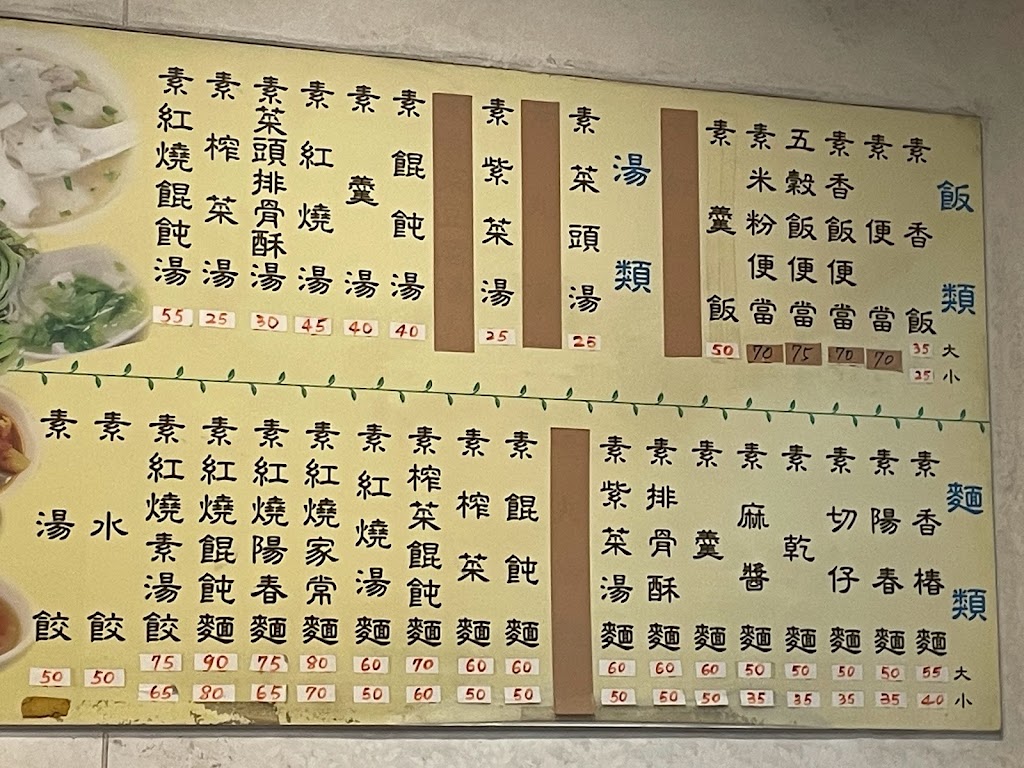 飯類
素香飯 35 大 25 小
素便當 70
素香飯便當 70
五穀飯便當 75
素米粉便當 70
素羹飯 50
湯類
素菜頭湯 25
素紫菜湯 25
素餛飩湯 40
素羹湯 40
素紅燒湯 45
素菜頭排骨酥湯 30
素榨菜湯 25
素紅燒餛飩湯 55
麵類
大 小
素香椿麵 55 40
素陽春麵 50 35
素切仔麵 50 35
素乾麵 50 35
素麻醬麵 50 35
素羹麵 60 50
素排骨酥麵 60 50
素紫菜湯麵 60 50
素餛飩麵 60 50
素榨菜麵 60 50
素榨菜餛飩麵 70 60
素紅燒湯麵 60 50
素紅燒家常麵 80 70
素紅燒陽春麵 75 65
素紅燒餛飩麵 90 80
素紅燒素湯餃 75 65
素水餃 50
素湯餃 50